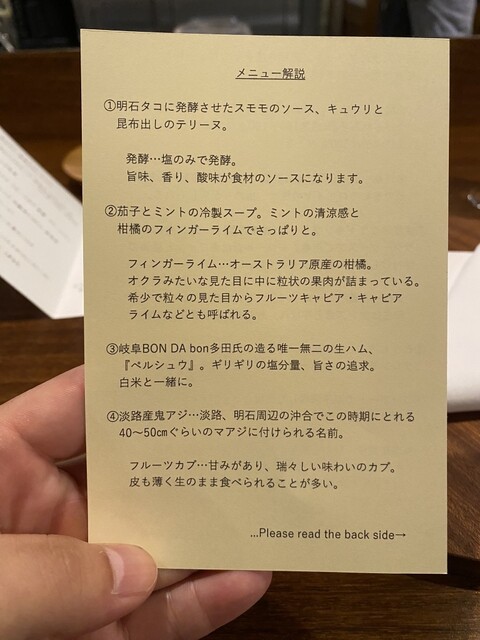 メニュー解説
①明石タコに発酵させたスモモのソース、キュウリと
昆布出しのテリーヌ。
発酵…塩のみで発酵。
旨味、香り、酸味が食材のソースになります。
②茄子とミントの冷製スープ。ミントの清涼感と
柑橘のフィンガーライムでさっぱりと。
フィンガーライム…オーストラリア原産の柑橘。
オクラみたいな見た目に中に粒状の果肉が詰まっている。
希少で粒々の見た目からフルーツキャビア・キャビア
ライムなどとも呼ばれる。
③岐阜BON DA bon多田氏の造る唯一無二の生ハム、
『ペルシュウ』。ギリギリの塩分量、旨さの追求。
白米と一緒に。
④淡路産鬼アジ…淡路、明石周辺の沖合でこの時期にとれる
40～50㎝ぐらいのマアジに付けられる名前。
フルーツカブ…甘みがあり、瑞々しい味わいのカブ。
皮も薄く生のまま食べられることが多い。
...Please read the back side→